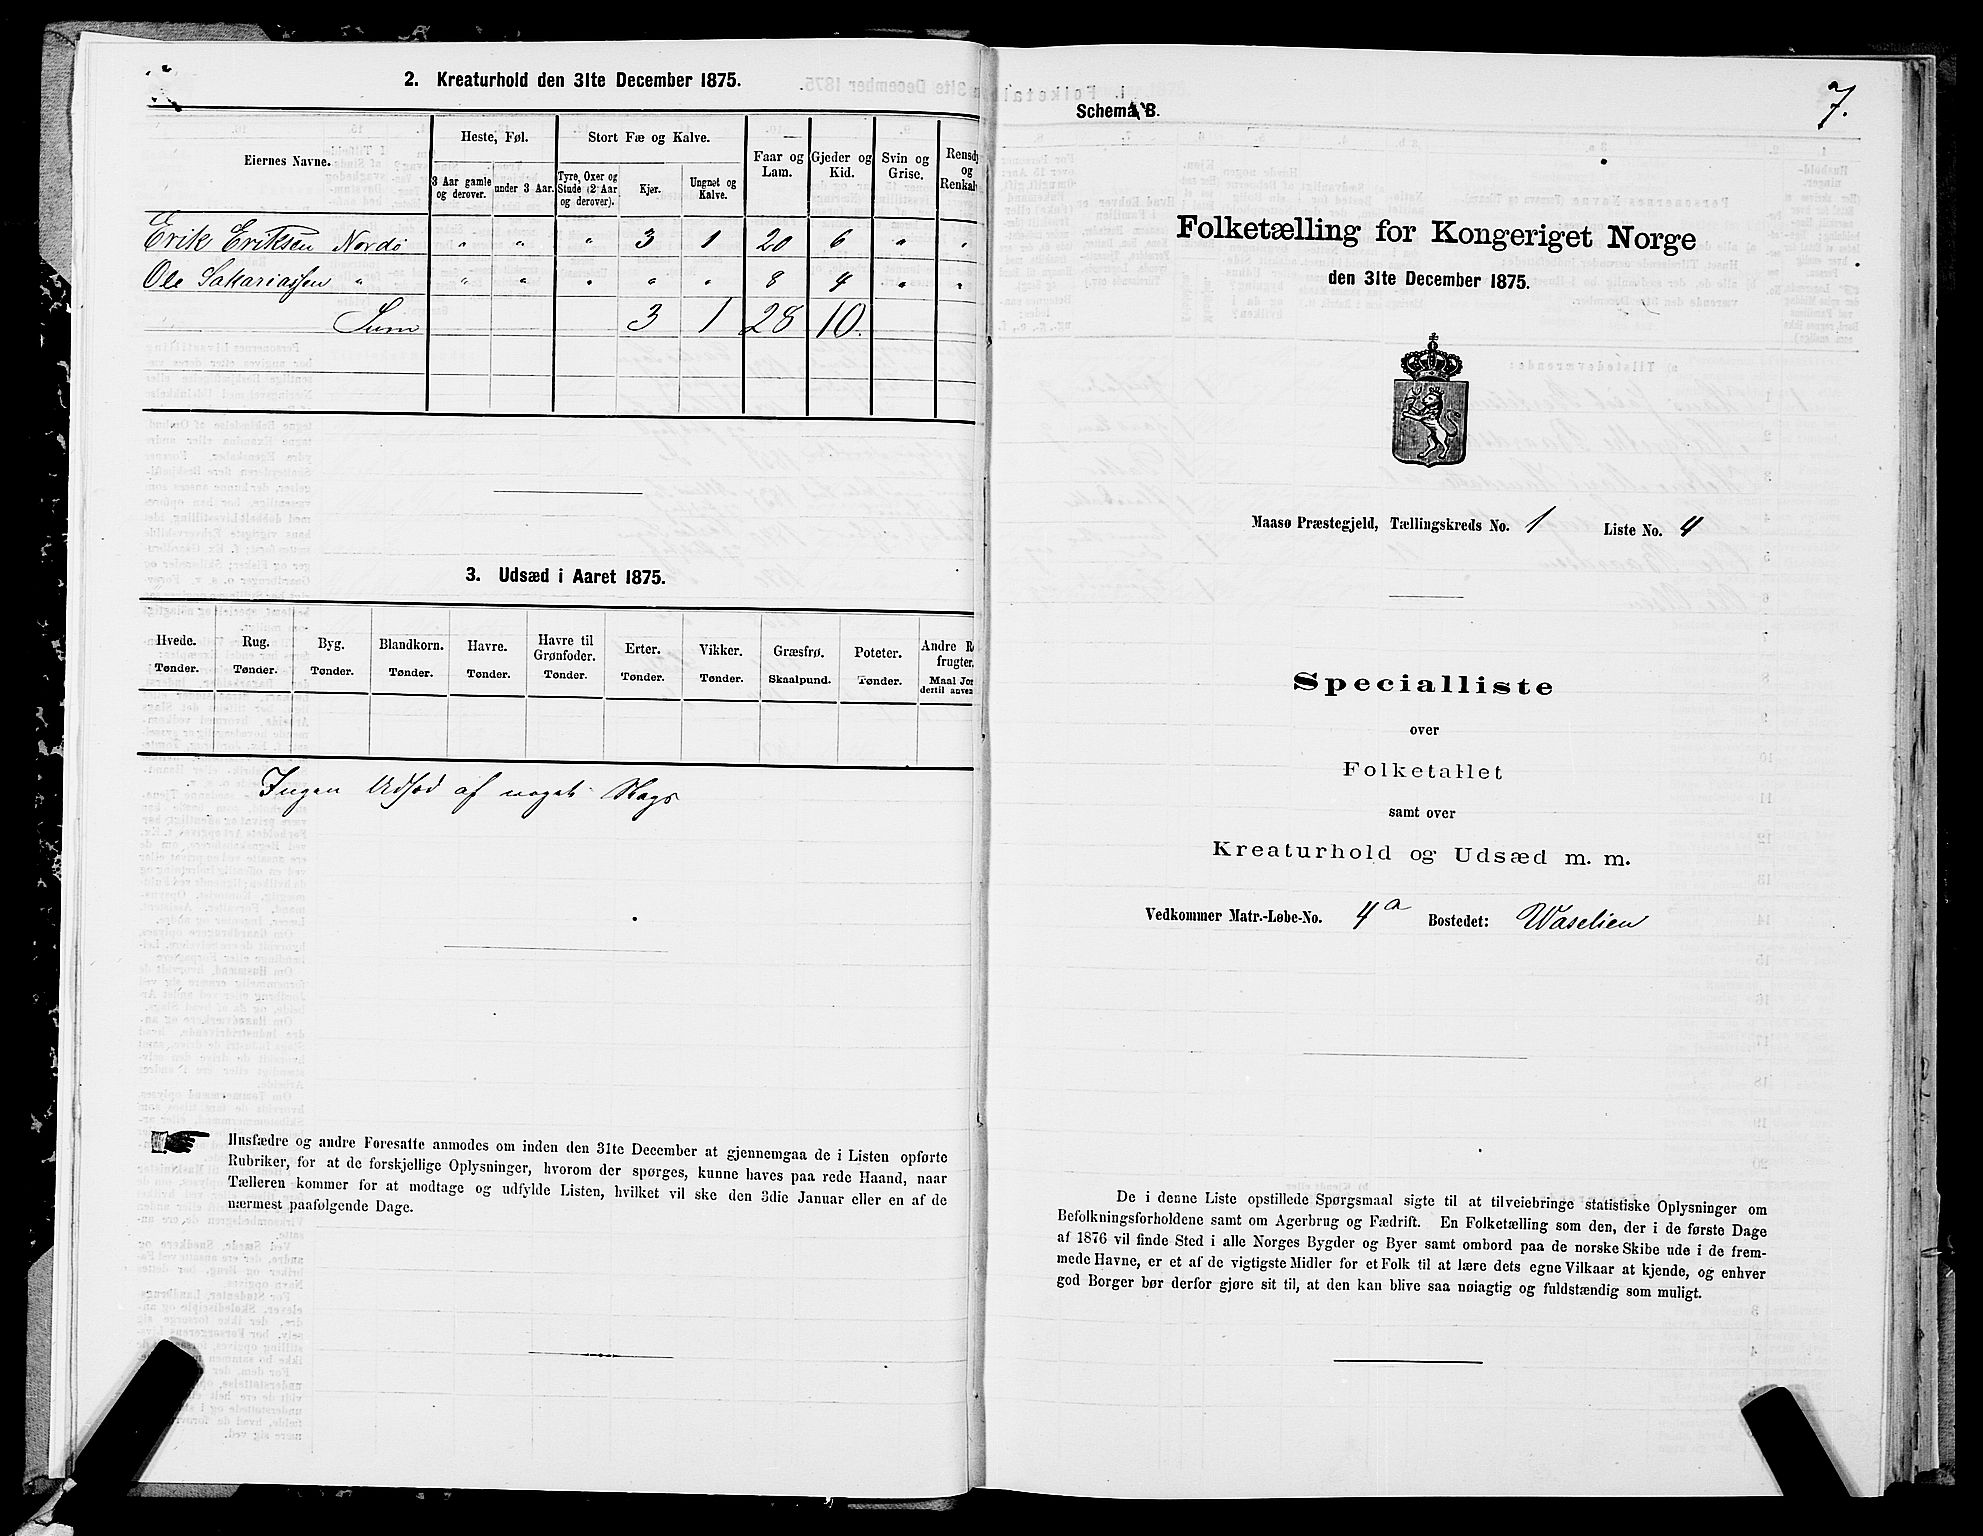 2. Kreaturhold den 31te December 1875.
Eiernes Navne.
Heste, Føl.
Stort Fæ og Kalve.
Faar og Lam.
Gjeder og Kid.
Svin og Grise.
Rensdy
og
Renkalv
3 Aar gamle og derover.
under 3 Aar.
Tyre, Oxer og Stude (2 Aar og derover).
Kjør.
Ungnøt og Kalve.
Erik Eriksen Nordö " " " 3 1 20 6 " "
Ole Sakariassen " " " " " " 8 4 " "
Sum 3 1 28 10.
3. Udsæd i Aaret 1875.
Hvede. Rug. Byg. Blandkorn. Havre. Havre til Grønfoder. Erter. Vikker. Græsfrø. Poteter. Andre R
frugter.
Tønder. Tønder. Tønder. Tønder. Tønder. Tønder. Tønder. Tønder. Skaalpund. Tønder. Maal Jor
dertil anven
Ingen Udsæd af noget Slags
Husfædre og andre Foresatte anmodes om inden den 31te December at gjennemgaa de i Listen opførte
Rubriker, for at de forskjellige Oplysninger, hvorom der spørges, kunne haves paa rede Haand, naar
Tælleren kommer for at modtage og udfylde Listen, hvilket vil ske den 3die Januar eller en af de
nærmest paafølgende Dage.
7.
Schema B.
Folketælling for Kongeriget Norge
den 31te December 1875.
Maasø Præstegjeld, Tællingskreds No. 1 Liste No. 4
Specialliste
over
Folketallet
samt over
Kreaturhold og Udsæd m. m.
Vedkommer Matr.-Løbe-No. 4a Bostedet: Waselien
De i denne Liste opstillede Spørgsmaal sigte til at tilveiebringe statistiske Oplysninger om
Befolkningsforholdene samt om Agerbrug og Fædrift. En Folketælling som den, der i de første Dage
af 1876 vil finde Sted i alle Norges Bygder og Byer samt ombord paa de norske Skibe ude i de frem-
mede Havne, er et af de vigtigste Midler for et Folk til at lære dets egne Vilkaar at kjende, og enhver
god Borger bør derfor gjøre sit til, at den kan blive saa nøiagtig og fuldstændig som muligt.